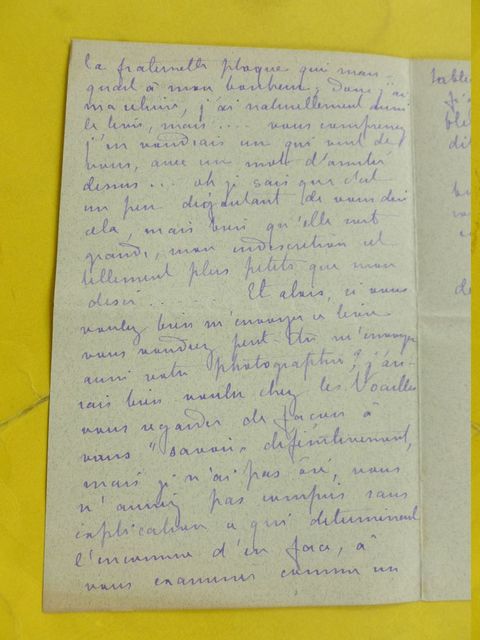 la fraternelle phoque qui man-
quait à mon bonheur; Donc j'ai
ma chérie, j'ai naturellement aussi
le livre, mais .... vous comprenez
j'en voudrais un qui vint de
vous, avec un mot d'amitié
dessus ... oh je sais que c'est
un peu dégoûtant de vous dire
cela, mais bien qu'elle soit
grande, mon indiscrétion est
tellement plus petite que mon
désir .... Et alors, si vous
voulez bien m'envoyer ce livre
vous voudrez peut-être m'envoyer
aussi votre photographie? j'au-
rais bien voulu chez les Noailles
vous regarder de façon à
vous "savoir" définitivement,
mais je n'ai pas osé, vous
n'auriez pas compris sans
explication ce qui déterminait
l'inconnue d'en face, à
vous examiner comme un
j'a
di